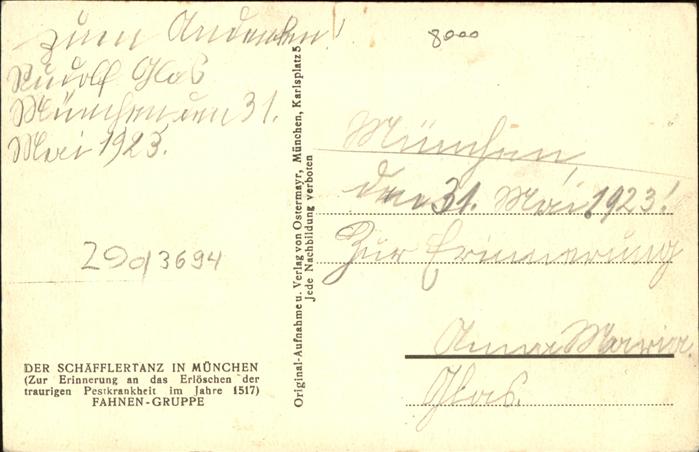 Zum Andenken!
Rudolf Glas
München, den 31.
Mai 1923.
29d3694
DER SCHÄFFLERTANZ IN MÜNCHEN
(Zur Erinnerung an das Erlöschen der
traurigen Pestkrankheit im Jahre 1517)
FAHNEN-GRUPPE
Original-Aufnahme u. Verlag von Ostermayr, München, Karlsplatz 5
Jede Nachbildung verboten
8000
München,
den 31. Mai 1923!
Zur Erinnerung
Anna Maria
Glas.